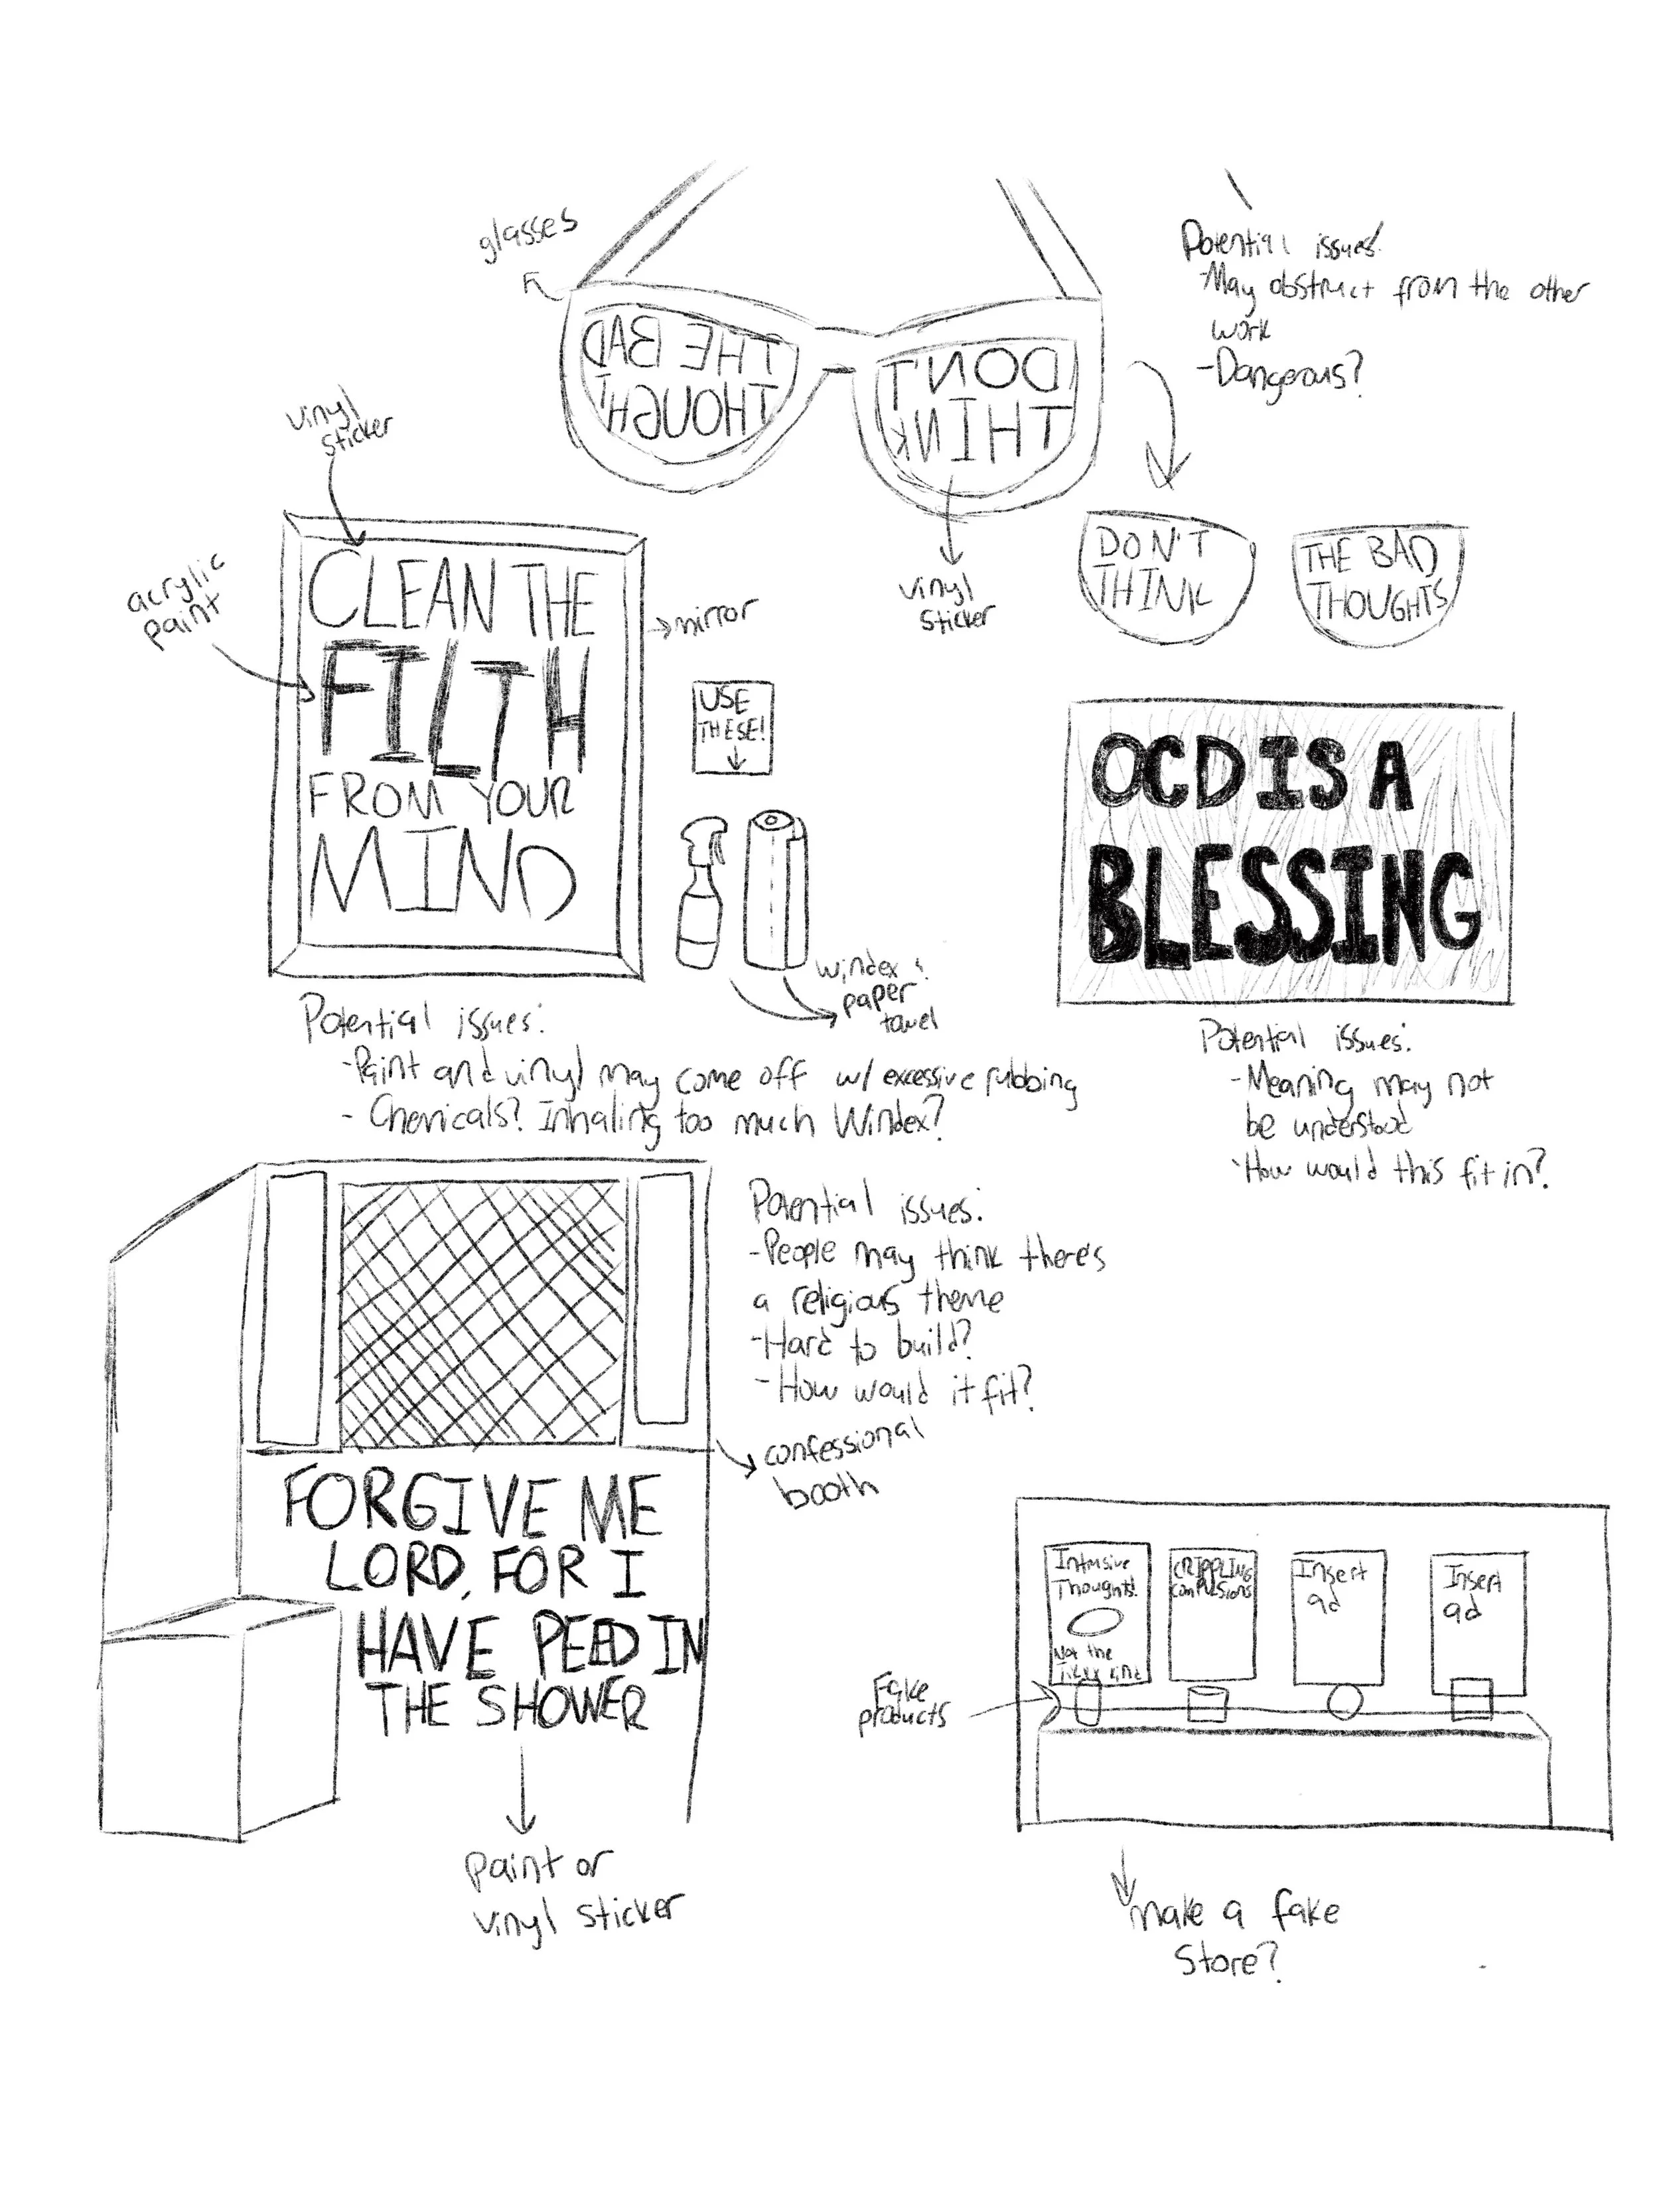 glasses
Potential issues:
-May obstruct from the other
work
-Dangerous?
THE BAD
THOUGHT
DON'T
THINK
vinyl
sticker
DON'T
THINK
THE BAD
THOUGHTS
vinyl
sticker
acrylic
paint
CLEAN THE
FILTH
FROM YOUR
MIND
→mirror
USE
THESE!
windex &
paper
towel
Potential issues:
-Paint and vinyl may come off w/ excessive rubbing
- Chemicals? Inhaling too much Windex?
OCD IS A
BLESSING
Potential issues:
-Meaning may not
be understood
-How would this fit in?
Potential issues:
-People may think there's
a religious theme
-Hard to build?
-How would it fit?
confessional
booth
FORGIVE ME
LORD, FOR I
HAVE PEED IN
THE SHOWER
paint or
vinyl sticker
Intrusive
Thoughts!
Not the
kind
CRIPPLING
COMPULSIONS
Insert
ad
Insert
ad
Fake
products
make a fake
store?